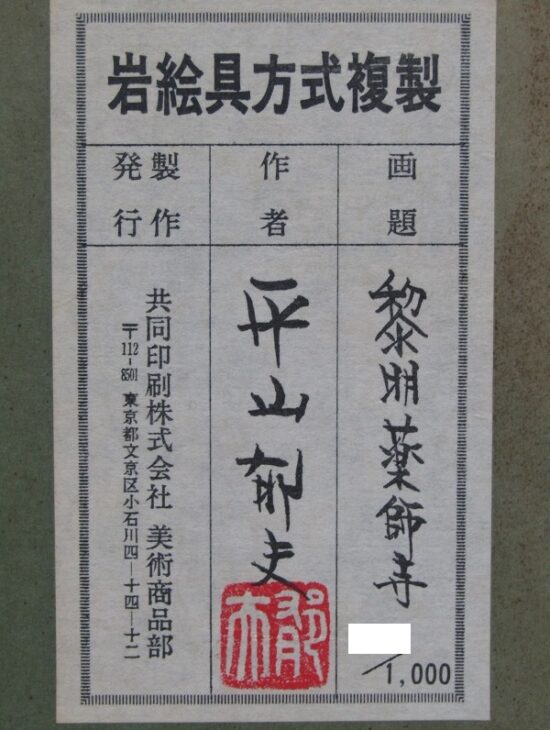 岩絵具方式複製
画題
黎明薬師寺
/1,000
作者
平山郁夫
郁夫
製作
発行
共同印刷株式会社 美術商品部
〒112-8501 東京都文京区小石川四―十四―十二